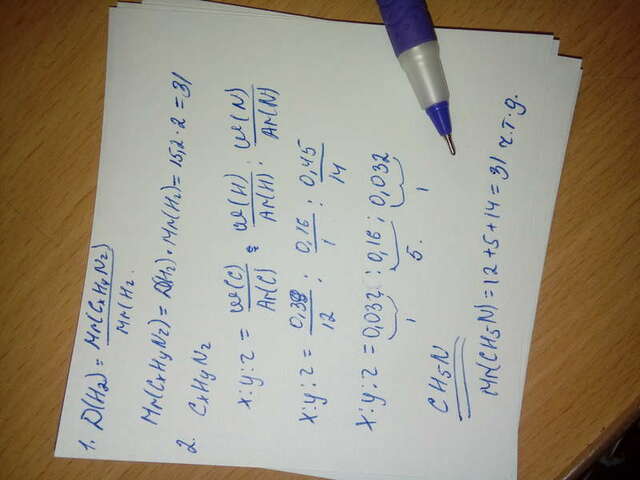 1. D(H₂) = Mr(CxHyNz) / Mr(H₂
Mr(CxHyNz) = D(H₂) · Mr(H₂) = 15,2 · 2 = 31
2. CxHyNz
x : y : z = w(C) / Ar(C) : w(H) / Ar(H) : w(N) / Ar(N)
x : y : z = 0,39 / 12 : 0,16 / 1 : 0,45 / 14
x : y : z = 0,032 : 0,16 : 0,032
1 5. 1
CH₅N
Mr(CH₅N) = 12 + 5 + 14 = 31 ч.т.д.